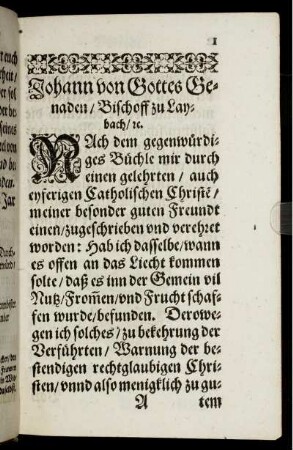 1
Johann von Gottes Ge-
naden / Bischoff zu Lay-
bach / ꝛc.
NAch dem gegenwürdi-
ges Büchle mir durch
einen gelehrten / auch
eyferigen Catholischen Christẽ /
meiner besonder guten Freundt
einen / zugeschrieben und verehret
worden: Hab ich dasselbe / wann
es offen an das Liecht kommen
solte / daß es inn der Gemein vil
Nutz / From̃en / vnd Frucht schaf-
fen wurde / befunden. Derowe-
gen ich solches / zu bekehrung der
Verführten / Warnung der be-
stendigen rechtglaubigen Chri-
sten / vnnd also menigklich zu gu-
A tem